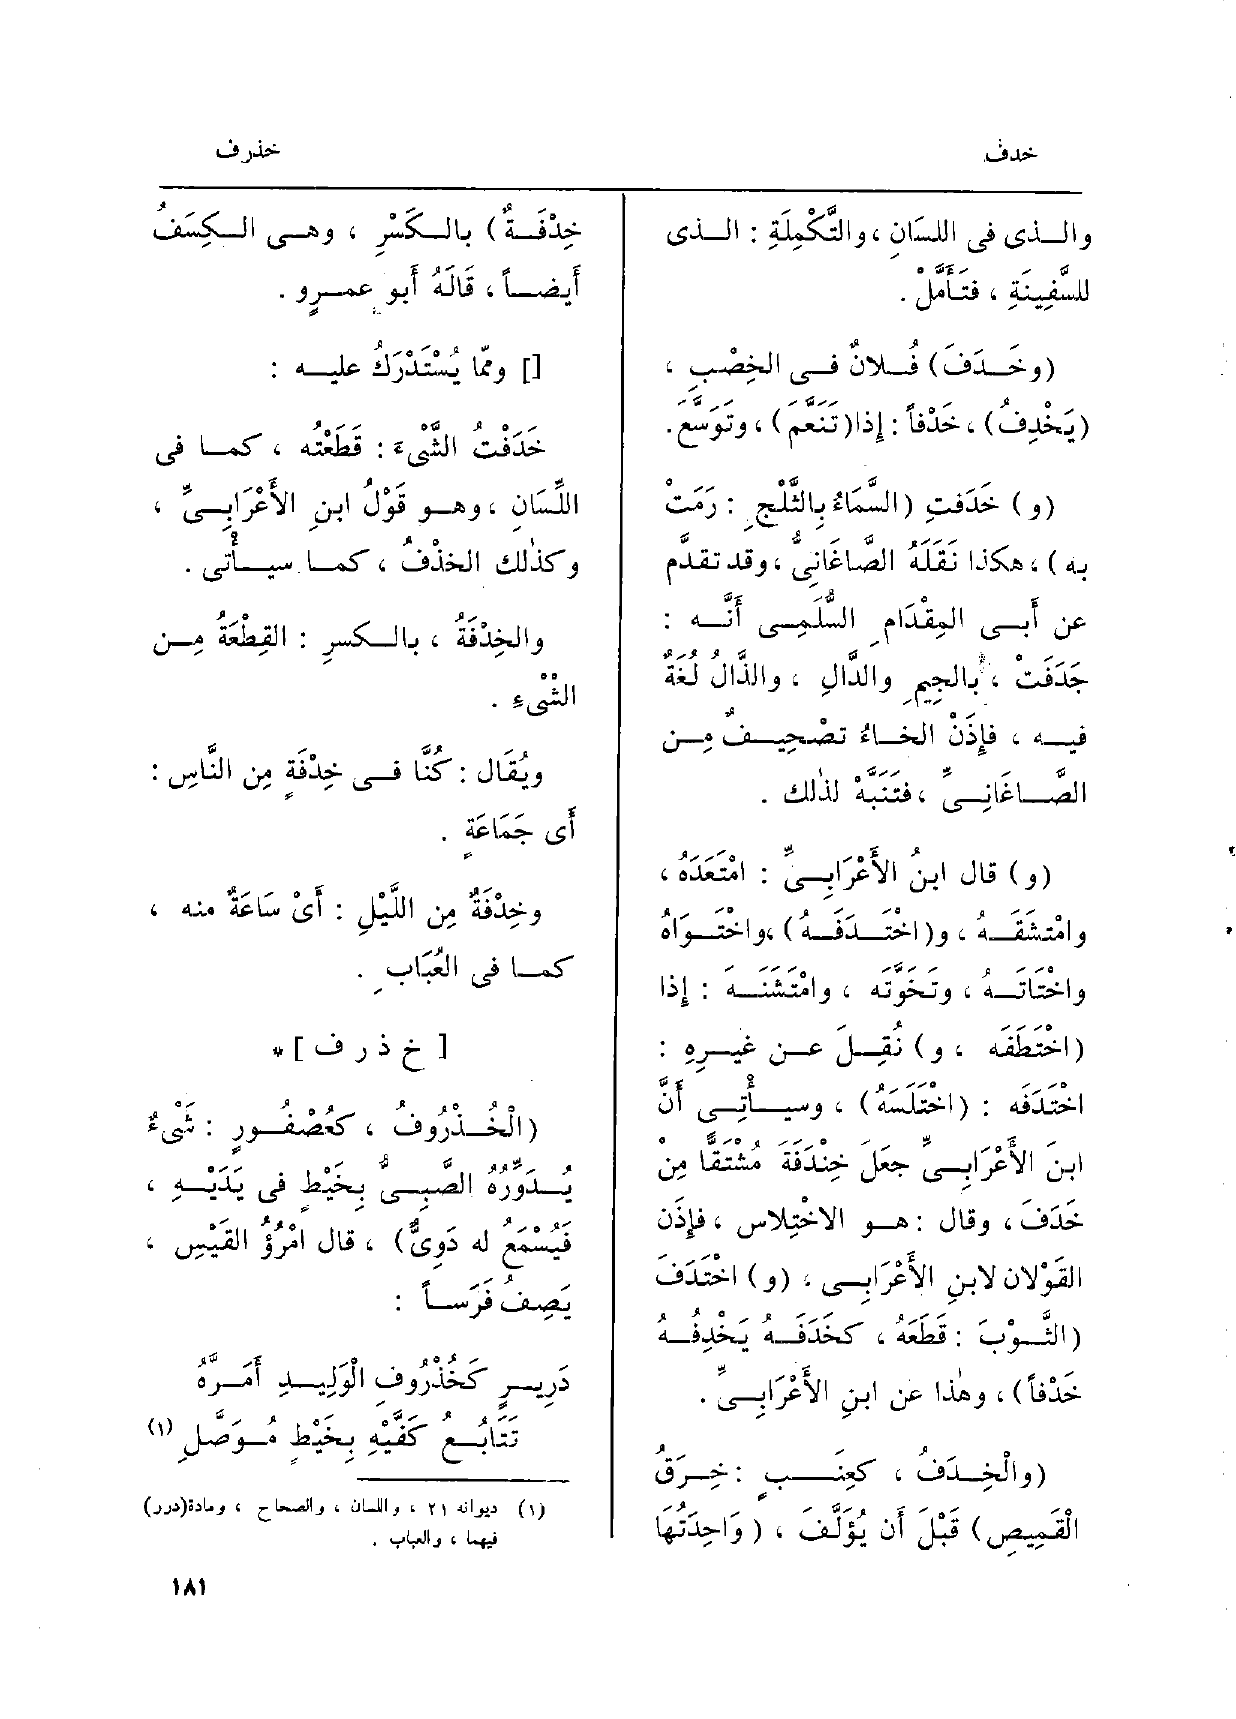 خدف
خذرف
والــذى فى اللسَانِ ، والتَّكْمِلَةِ : الــذى
للسَّفِينةِ ، فتَأَمَّلْ .
(وخَــدَفَ) فُــلانٌ فــى الخِصْبِ ،
(يَخْدِفُ) ، خَدْفاً : إذا(تَنَعَّمَ) ، وتَوَسَّعَ.
(و) خَدَفَتِ (السَّمَاءُ بِالثَّلْجِ : رَمَتْ
به) ، هكذا نَقَلَهُ الصَّاغَانِىُّ ، وقد تقدَّم
عن أَبــى المِقْدَامِ السُّلَمِــى أَنَّــه :
جَدَفَتْ ، بالجِيمِ والدَّالِ ، والذَّالُ لُغَةٌ
فيــه ، فإِذَنْ الخــاءُ تصْحِيــفٌ مِــن
الصَّــاغَانِــىِّ ، فتَنَبَّهْ لذٰلك .
(و) قال ابنُ الأَعْرَابِــىِّ : امْتَعَدَهُ ،
وامْتَشَقَــهُ ، و(اخْتَــدَفَــهُ) ،واخْتَــوَاهُ
واخْتَاتَــهُ ، وتَخَوَّتَه ، وامْتَشَنَــهَ : إذا
(اخْتَطَفَه ، و) نُقِــلَ عــن غيــرِهِ :
اخْتَدَفَه : (اخْتَلَسَهُ) ، وسيــأْتِــى أَنَّ
ابنَ الأَعْرَابِــىِّ جعَلَ خِنْدَفَةَ مُشْتَقًّا مِنْ
خَدَفَ ، وقال : هــو الاخْتِلاس ، فإِذَن
القَوْلان لابنِ الأَعْرَابِــى ، (و) اخْتَدَفَ
(الثَّــوْبَ : قَطَعَهُ ، كخَدَفَــهُ يَخْدِفُــهُ
خَدْفاً) ، وهٰذا عن ابنِ الأَعْرَابِــىِّ .
(والْخِــدَفُ ، كعِنَــبٍ : خِــرَقُ
القَمِيصِ) قَبْلَ أن يُؤَلَّفَ ، (وَاحِدَتُها
خِدْفَــةٌ) بالــكَسْرِ ، وهــى الــكِسَفُ
أَيضــاً ، قَالَهُ أَبو عمــرٍو .
[] وممّا يُسْتَدْرَكُ عليــه :
خَدَفْتُ الشَّىْءَ : قَطَعْتُه ، كمــا فى
اللِّسَانِ ، وهــو قَوْلُ ابنِ الأَعْرَابِــىِّ ،
وكذٰلك الخذْفُ ، كمــا سيــأْتى .
والخِدْفَةُ ، بالــكسرِ : القِطْعَةُ مِــن
الشَّىْءِ .
ويُقَال : كُنَّا فــى خِدْفَةٍ مِن النَّاسِ :
أَى جَمَاعَةٍ .
وخِدْفَةٌ مِن اللَّيْلِ : أَىْ سَاعَةٌ منه ،
كمــا فى العُبَابِ .
[ خ ذ ر ف ] *
(الْخُــذْرُوفُ ، كعُصْفُــورٍ : شَىْءٌ
يُــدَوِّرُهُ الصَّبِــىُّ بِخَيْطٍ فى يَدَيْــهِ ،
فَيُسْمَعُ له دَوِىٌّ) ، قال امْرُؤُ القَيْسِ ،
يَصِفُ فَرَســاً :
دَرِيــرٍ كَخُذْرُوفِ الْوَلِيــدِ أَمَــرَّهُ
تَتَابُــعُ كَفَّيْهِ بِخَيْطٍ مُــوَصَّلِ (١)
(١) ديوانه ٢١ ، واللسان ، والصحاح ، ومادة(درر)
فيهما ، والعباب .
١٨١